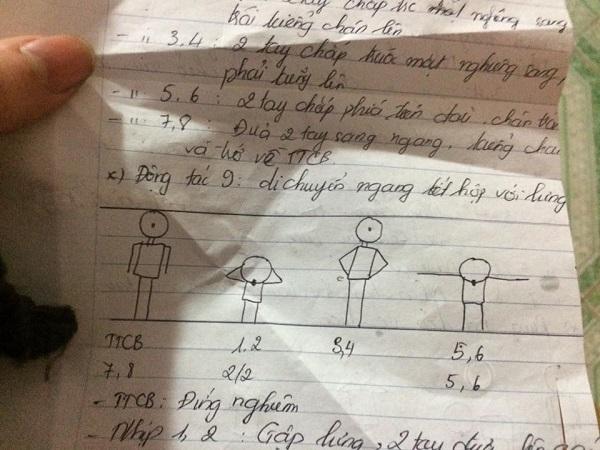 tay chắp trc mặt nghiêng sang
trái kiểng chân lên
- " 3,4 : 2 tay chắp trước mặt nghiêng sang
phải kiểng lên
- " 5,6 : 2 tay chắp phía trên đầu, chân
- " 7,8 : Đưa 2 tay sang ngang, kiểng chân
và hở về TTCB.
x) Động tác 9: di chuyển ngang kết hợp với lưng
TTCB 1.2 3,4 5,6
7,8 2/2 5,6
- TTCB: Đứng nghiêm
- Nhịp 1, 2 : Gập lưng, 2 tay đưa lên